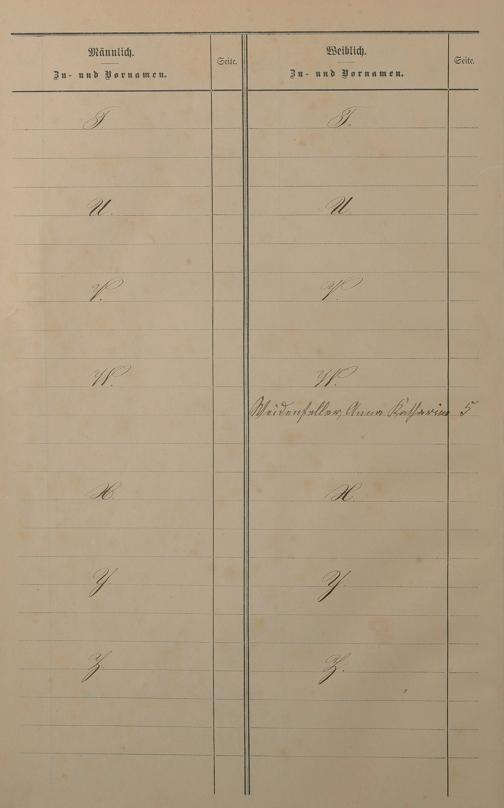 Männlich.
Zu- und Vornamen.
Seite.
Weiblich.
Zu- und Vornamen.
Seite.
T.
T.
U.
U.
V.
V.
W.
W.
Weidenfeller, Anna Katharina 5
X.
X.
Y.
Y.
Z.
Z.